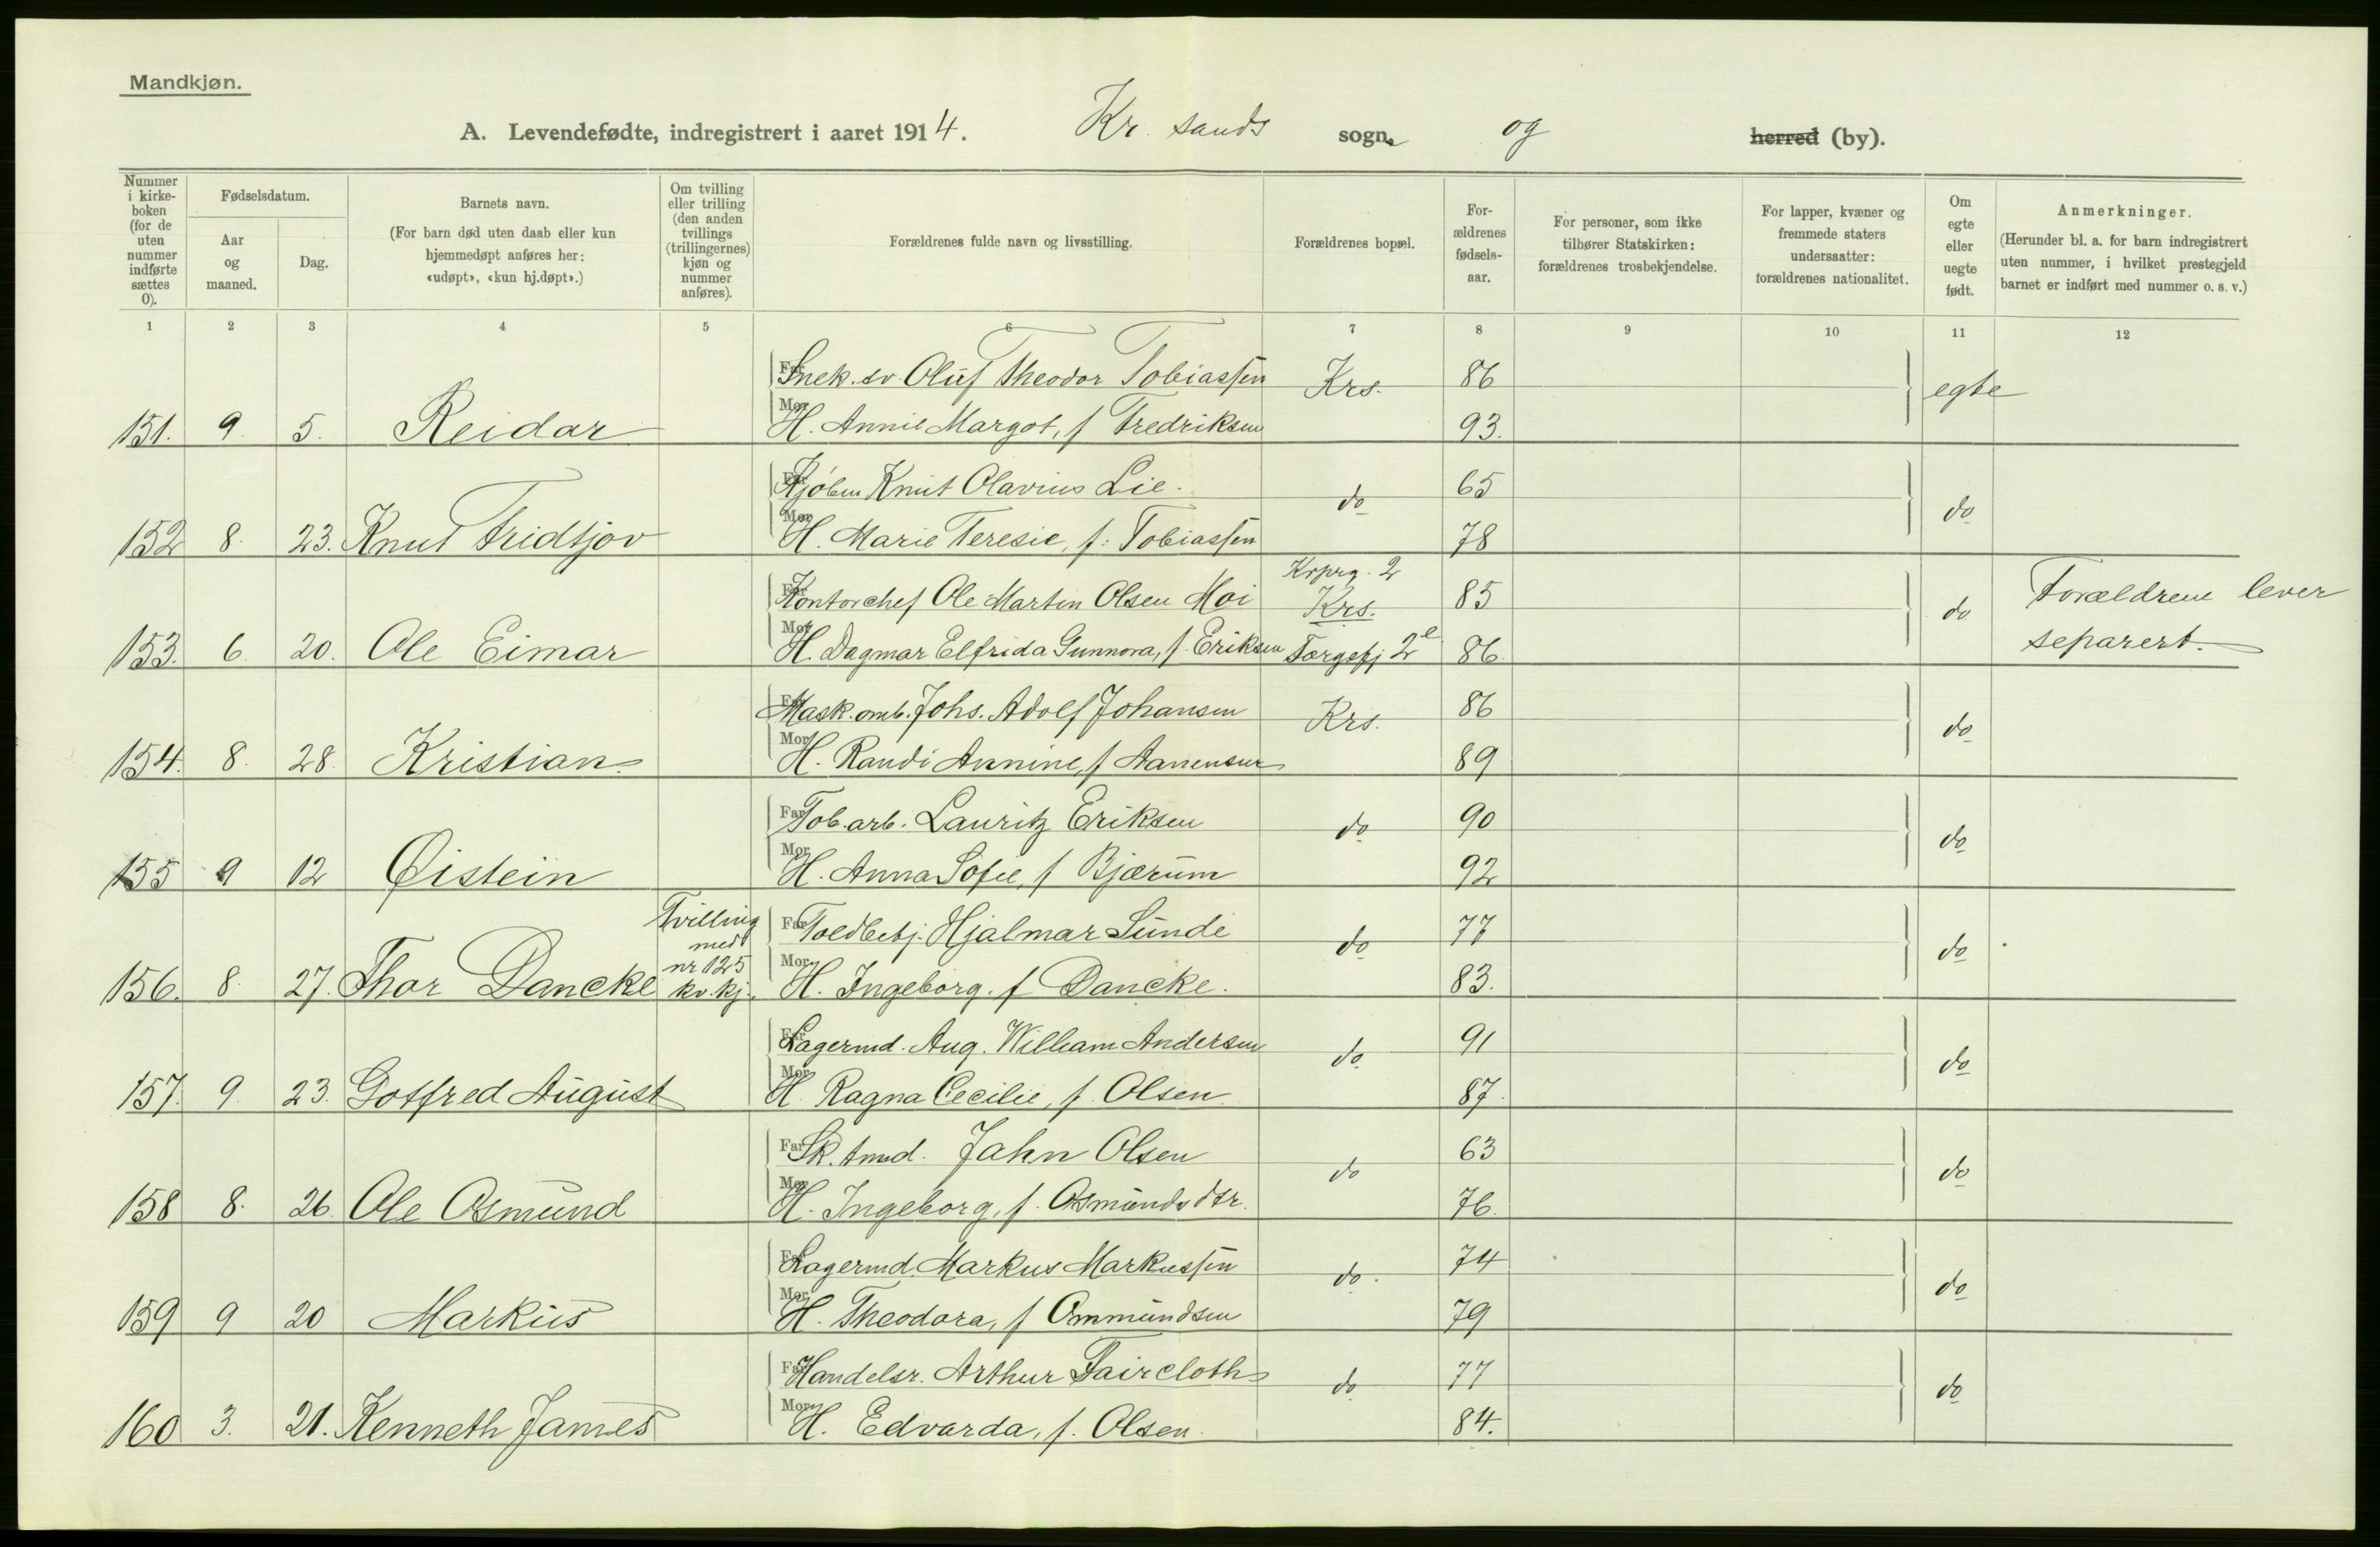 Mandkjøn.
A. Levendefødte, indregistrert i aaret 1914. Kr. sands sogn og herred (by).
Nummer i kirkeboken (for de uten nummer indførte sættes 0).
Fødselsdatum.
Aar og maaned.
Dag.
Barnets navn.
(For barn død uten daab eller kun hjemmedøpt anføres her: «udøpt», «kun hj.døpt».)
Om tvilling eller trilling (den anden tvillings (trillingernes) kjøn og nummer anføres).
Forældrenes fulde navn og livsstilling.
Forældrenes bopæl.
Forældrenes fødselsaar.
For personer, som ikke tilhører Statskirken: forældrenes trosbekjendelse.
For lapper, kvæner og fremmede staters undersaatter: forældrenes nationalitet.
Om egte eller uegte født.
Anmerkninger.
(Herunder bl. a. for barn indregistrert uten nummer, i hvilket prestegjeld barnet er indført med nummer o. s. v.)
1 2 3 4 5 6 7 8 9 10 11 12
Far Snek. sv. Oluf Theodor Tobiassen Krs. 86 egte
151. 9. 5. Reidar Mor H. Annie Margot, f Fredriksen 93.
Far Kjøbm Knut Olavius Lie. do 65 do
152 8. 23. Knut Fridtjov Mor H. Marie Teresie, f: Tobiassen 78
Krprg. 2
Far Kontorchef Ole Martin Olsen Moi Krs. 85 do Forældrene lever
153. 6. 20. Ole Eimar Mor H. Dagmar Elfrida Gunnora, f. Eriksen 2e 86. separert.
Far Mask. omb. Johs. Adolf Johansen Krs. 86 do
154. 8. 28. Kristian Mor H. Randi Annine, f Aanensen 89
Far Tob. arb. Lauritz Eriksen do 90 do
155 9 12 Øistein Mor H. Anna Sofie, f Bjærum 92
Tvilling
med
nr 125
kv. kj.
Far Toldbetj. Hjalmar Sunde do 77 do
156. 8. 27. Thor Dancke Mor H. Ingeborg. f Dancke. 83.
Far Lagermd. Aug. William Andersen do 91 do
157. 9. 23. Gotfred August Mor H. Ragna Cecilie, f. Olsen 87.
Far Sk. tmd. Jahn Olsen do 63 do
158 8. 26. Ole Osmund Mor H. Ingeborg, f. Osmundsdtr. 76.
Far Lagermd. Markus Markussen do. 74 do
159 9 20 Markus Mor H. Theodora, f Ommundsen 79
Far Handelsr. Arthur Faircloth do 77 do
160 3. 21. Kenneth James Mor H. Edvarda, f. Olsen. 84.